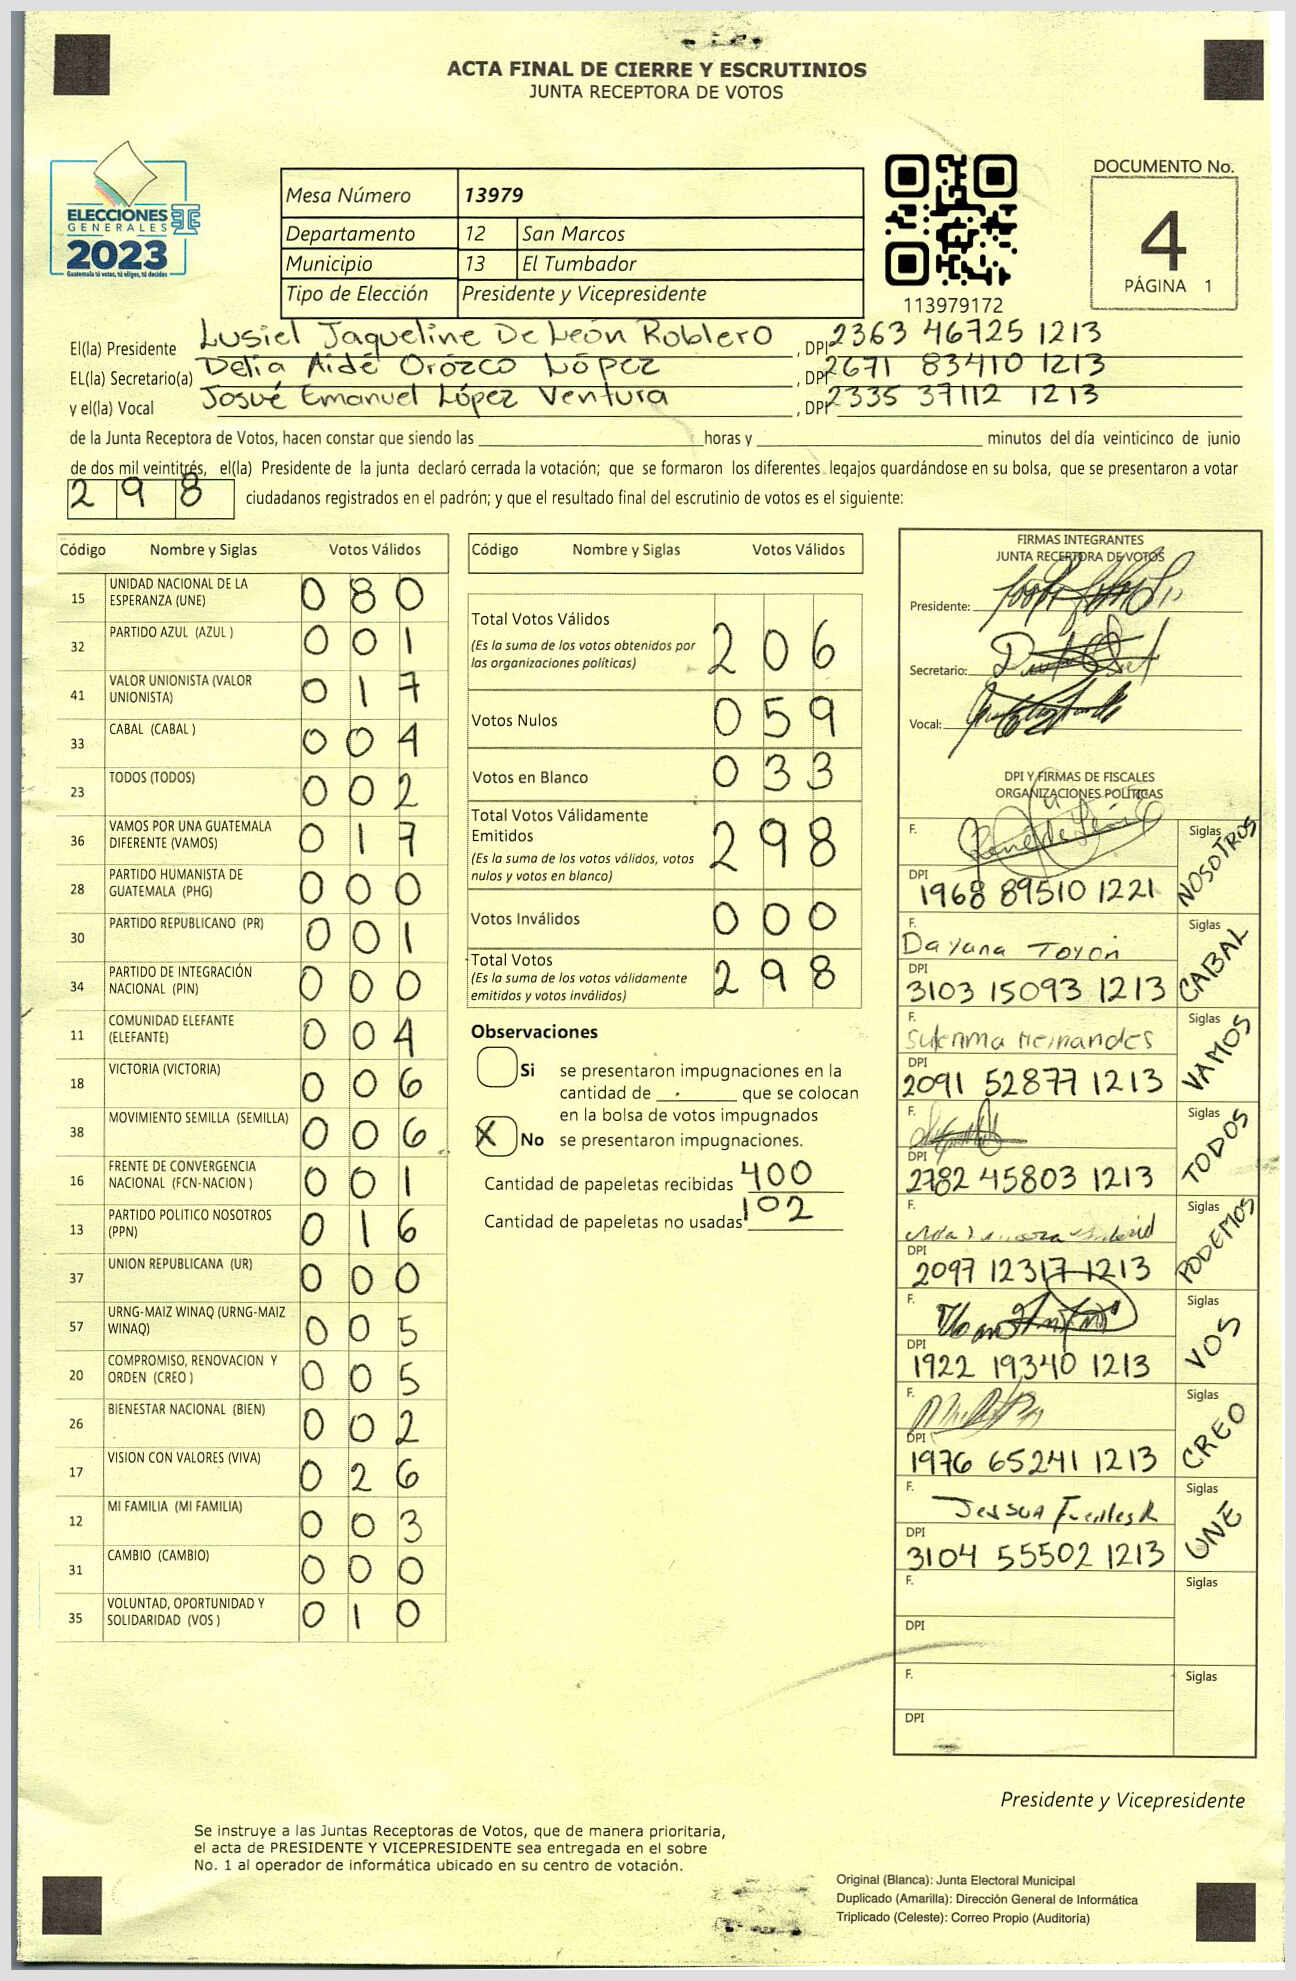 ACTA FINAL DE CIERRE Y ESCRUTINIOS
JUNTA RECEPTORA DE VOTOS
ELECCIONES
GENERALES
2023
Guatemala tú votas, tú eliges, tú decides
Mesa Número 13979
Departamento 12 San Marcos
Municipio 13 El Tumbador
Tipo de Elección Presidente y Vicepresidente
113979172
DOCUMENTO No.
4
PÁGINA 1
El(la) Presidente Lusiel Jaqueline De León Roblero, DPI 2363 46725 1213
EL(la) Secretario(a) Delia Aidé Orózco López, DPI 2671 83410 1213
y el(la) Vocal Josué Emanuel López Ventura, DPI 2335 37112 1213
de la Junta Receptora de Votos, hacen constar que siendo las ____ horas y ____ minutos del día veinticinco de junio
de dos mil veintitrés, el(la) Presidente de la junta declaró cerrada la votación; que se formaron los diferentes legajos guardándose en su bolsa, que se presentaron a votar
298 ciudadanos registrados en el padrón; y que el resultado final del escrutinio de votos es el siguiente:
Código Nombre y Siglas Votos Válidos
15 UNIDAD NACIONAL DE LA ESPERANZA (UNE) 080
32 PARTIDO AZUL (AZUL ) 001
41 VALOR UNIONISTA (VALOR UNIONISTA) 017
33 CABAL (CABAL ) 004
23 TODOS (TODOS) 002
36 VAMOS POR UNA GUATEMALA DIFERENTE (VAMOS) 017
28 PARTIDO HUMANISTA DE GUATEMALA (PHG) 000
30 PARTIDO REPUBLICANO (PR) 001
34 PARTIDO DE INTEGRACIÓN NACIONAL (PIN) 000
11 COMUNIDAD ELEFANTE (ELEFANTE) 004
18 VICTORIA (VICTORIA) 006
38 MOVIMIENTO SEMILLA (SEMILLA) 006
16 FRENTE DE CONVERGENCIA NACIONAL (FCN-NACION ) 001
13 PARTIDO POLITICO NOSOTROS (PPN) 016
37 UNION REPUBLICANA (UR) 000
57 URNG-MAIZ WINAQ (URNG-MAIZ WINAQ) 005
20 COMPROMISO, RENOVACION Y ORDEN (CREO ) 005
26 BIENESTAR NACIONAL (BIEN) 002
17 VISION CON VALORES (VIVA) 026
12 MI FAMILIA (MI FAMILIA) 003
31 CAMBIO (CAMBIO) 000
35 VOLUNTAD, OPORTUNIDAD Y SOLIDARIDAD (VOS ) 010
Código Nombre y Siglas Votos Válidos
Total Votos Válidos 206
(Es la suma de los votos obtenidos por
las organizaciones políticas)
Votos Nulos 059
Votos en Blanco 033
Total Votos Válidamente
Emitidos 298
(Es la suma de los votos válidos, votos
nulos y votos en blanco)
Votos Inválidos 000
Total Votos 298
(Es la suma de los votos válidamente
emitidos y votos inválidos)
Observaciones
Si se presentaron impugnaciones en la
cantidad de ____ que se colocan
en la bolsa de votos impugnados
X No se presentaron impugnaciones.
Cantidad de papeletas recibidas 400
Cantidad de papeletas no usadas 102
FIRMAS INTEGRANTES
JUNTA RECEPTORA DE VOTOS
Presidente:
Secretario:
Vocal:
DPI Y FIRMAS DE FISCALES
ORGANIZACIONES POLÍTICAS
F. Siglas NOSOTROS
DPI 1968 89510 1221
F. Dayana Toyon Siglas CABAL
DPI 3103 15093 1213
F. Siglas VAMOS
DPI 2091 52877 1213
F. Siglas TODOS
DPI 2782 45803 1213
F. Siglas PODEMOS
DPI 2097 12317 1213
F. Siglas VOS
DPI 1922 19340 1213
F. Siglas CREO
DPI 1976 65241 1213
F. Siglas UNE
DPI 3104 55502 1213
F. Siglas
DPI
F. Siglas
DPI
Presidente y Vicepresidente
Se instruye a las Juntas Receptoras de Votos, que de manera prioritaria,
el acta de PRESIDENTE Y VICEPRESIDENTE sea entregada en el sobre
No. 1 al operador de informática ubicado en su centro de votación.
Original (Blanca): Junta Electoral Municipal
Duplicado (Amarilla): Dirección General de Informática
Triplicado (Celeste): Correo Propio (Auditoría)